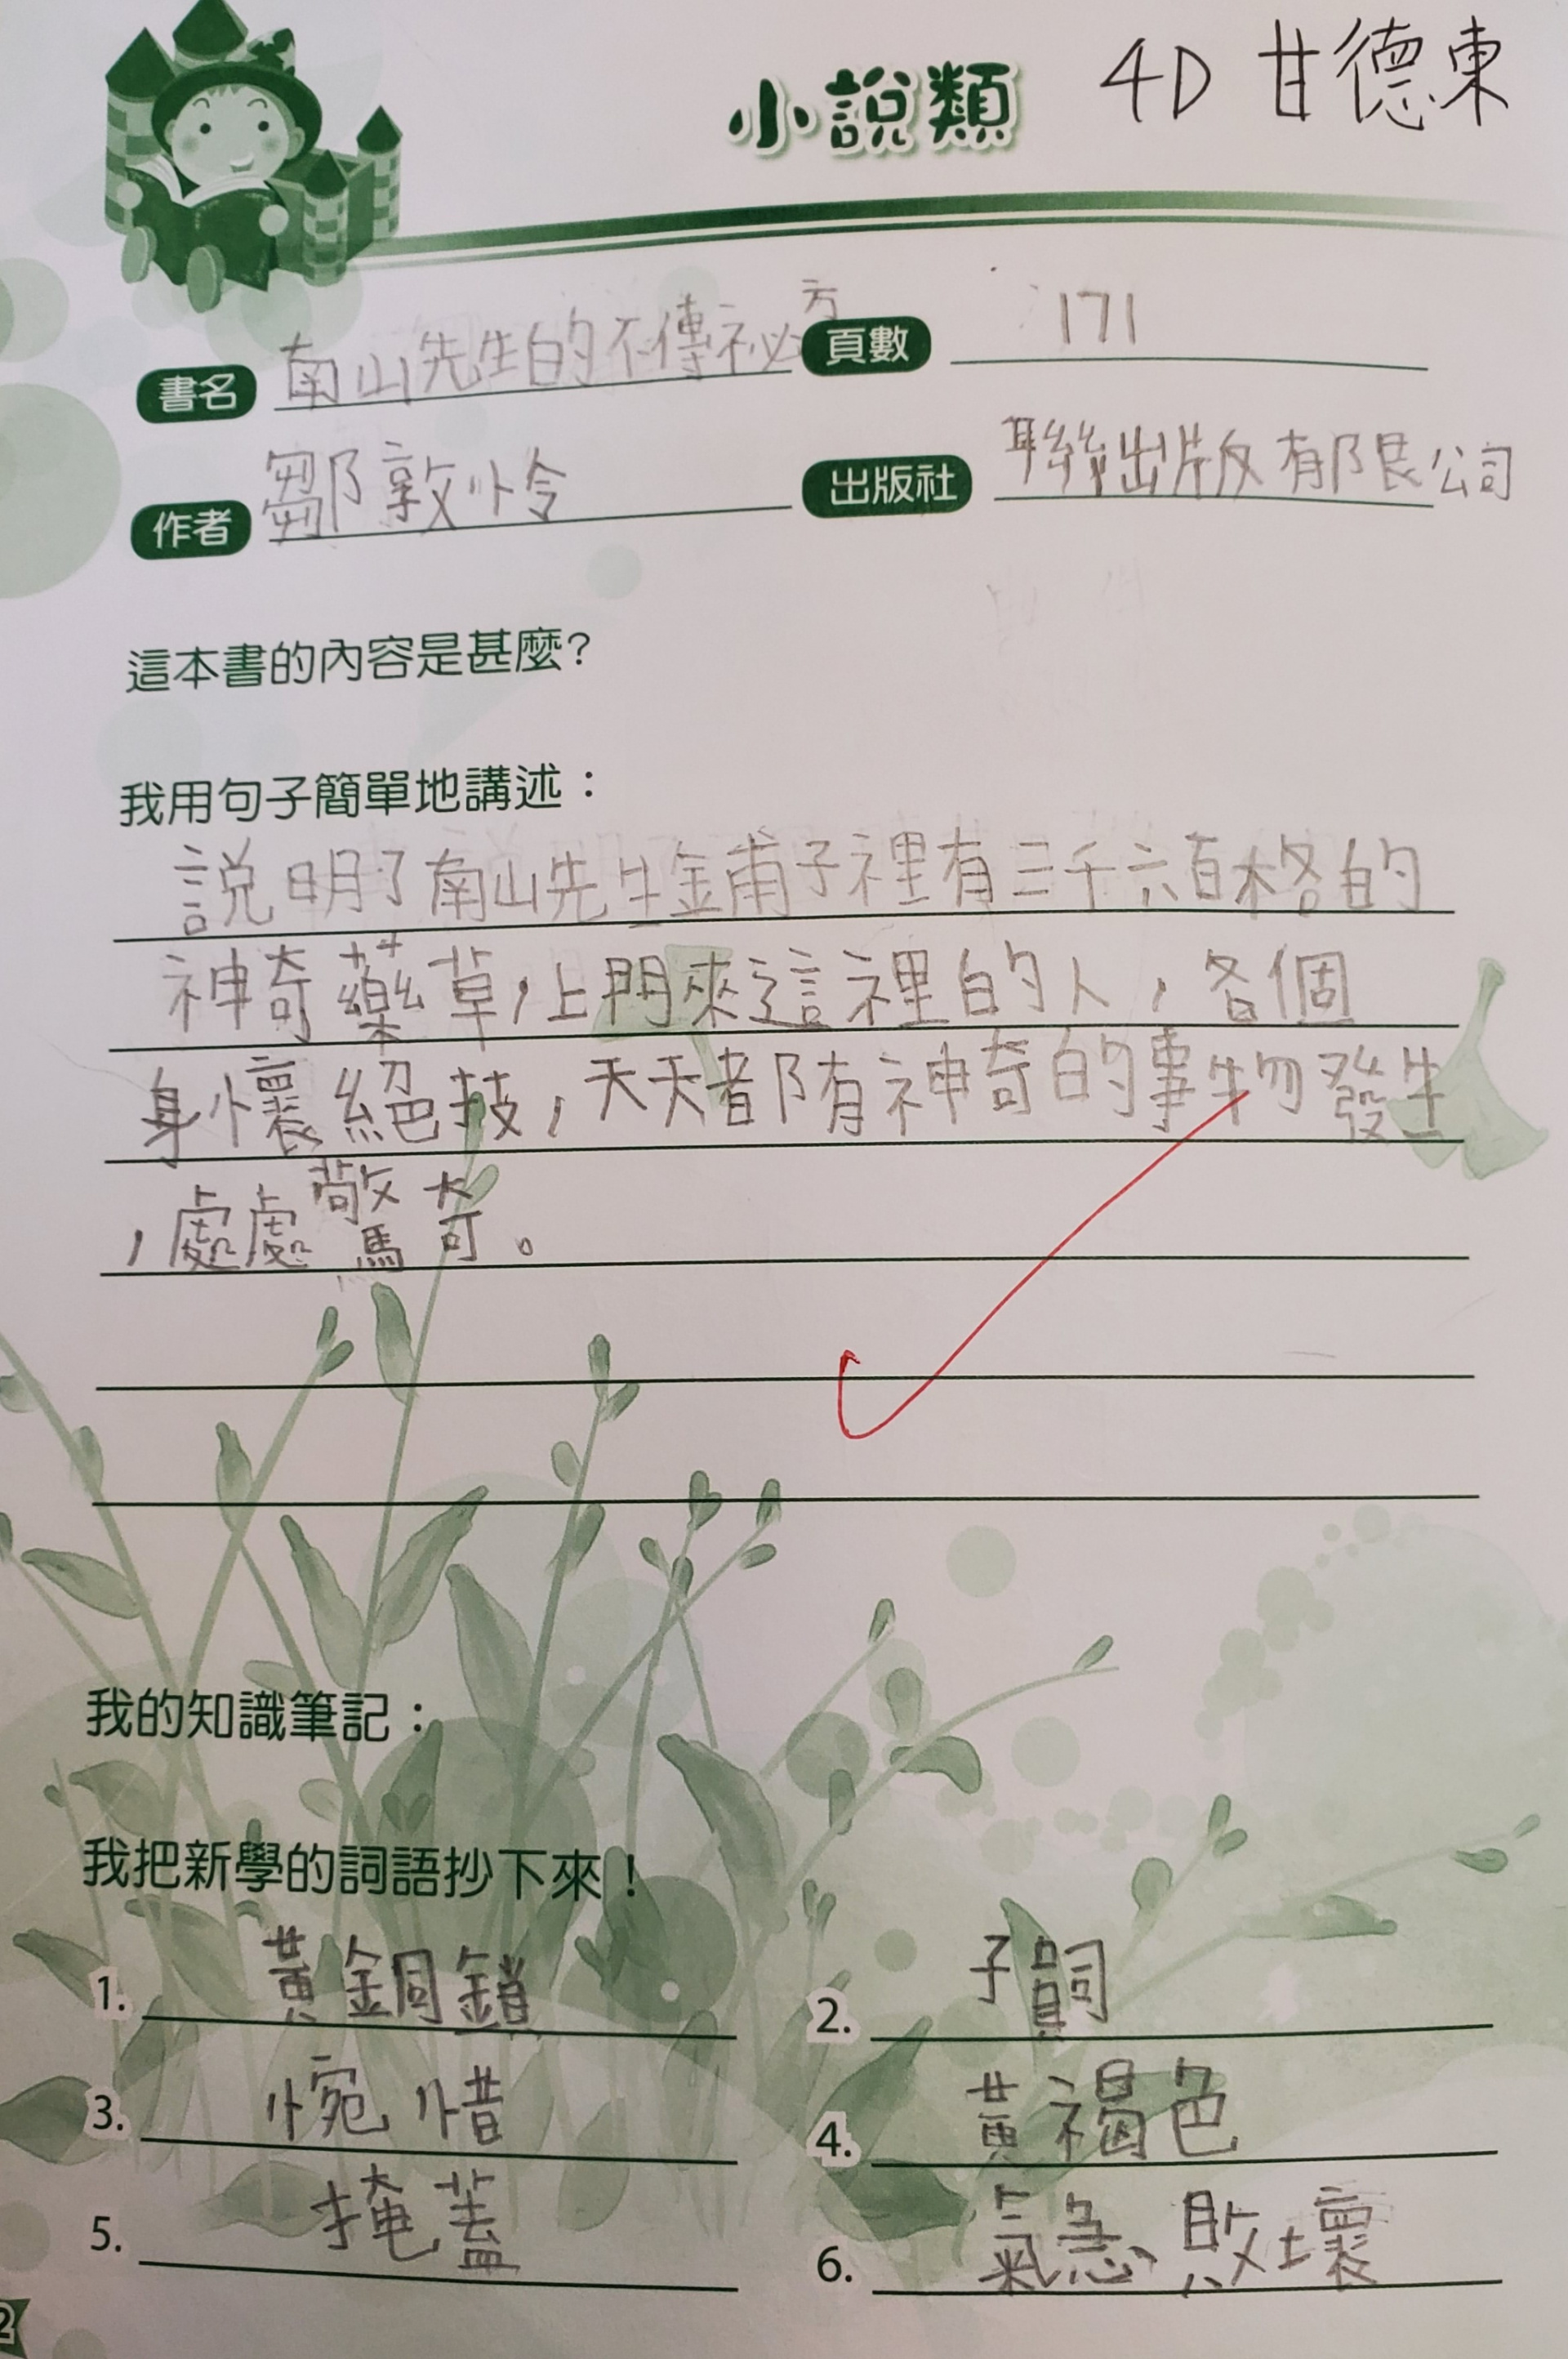 小說類 4D 甘德東
書名 南山先生的不傳祕方 頁數 171
作者 鄒敦怜 出版社 聯經出版有限公司
這本書的內容是甚麼?
我用句子簡單地講述：
說明了南山先生鋪子裡有三千六百格的
神奇藥草，上門來這裡的人，各個
身懷絕技，天天都有神奇的事物發生
，處處驚奇。
我的知識筆記：
我把新學的詞語抄下來！
1. 黃銅鎖 2. 子嗣
3. 惋惜 4. 黃褐色
5. 掩蓋 6. 氣急敗壞
2